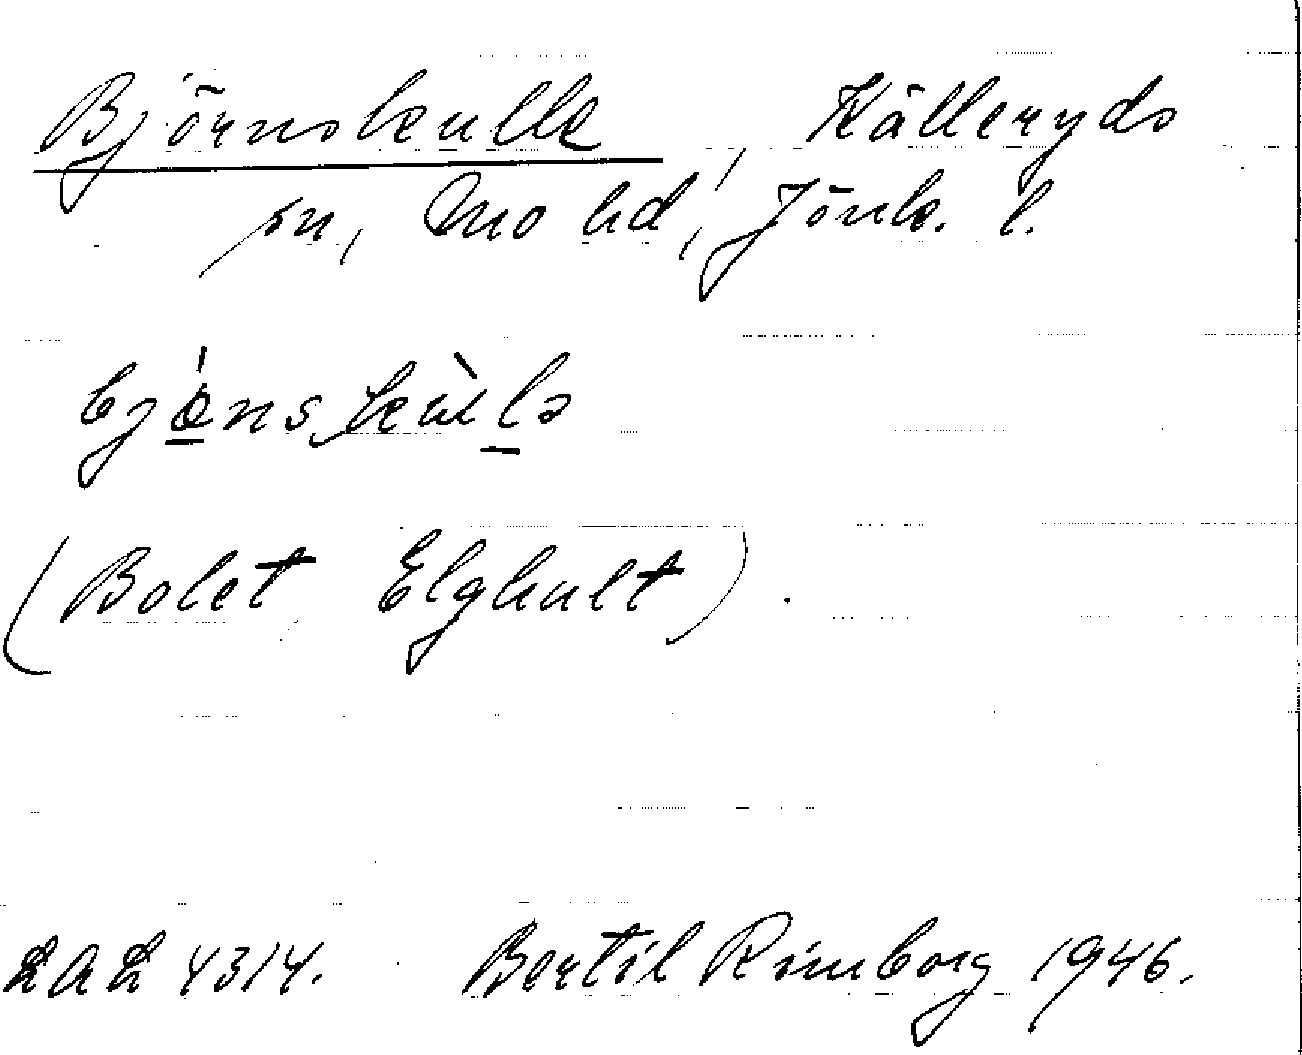 Björnskulle, Kålleryds
sn, Mo hd, Jönk. l.
(Bolet Elghult).
LAL 4314. Bertil Rimborg 1946.